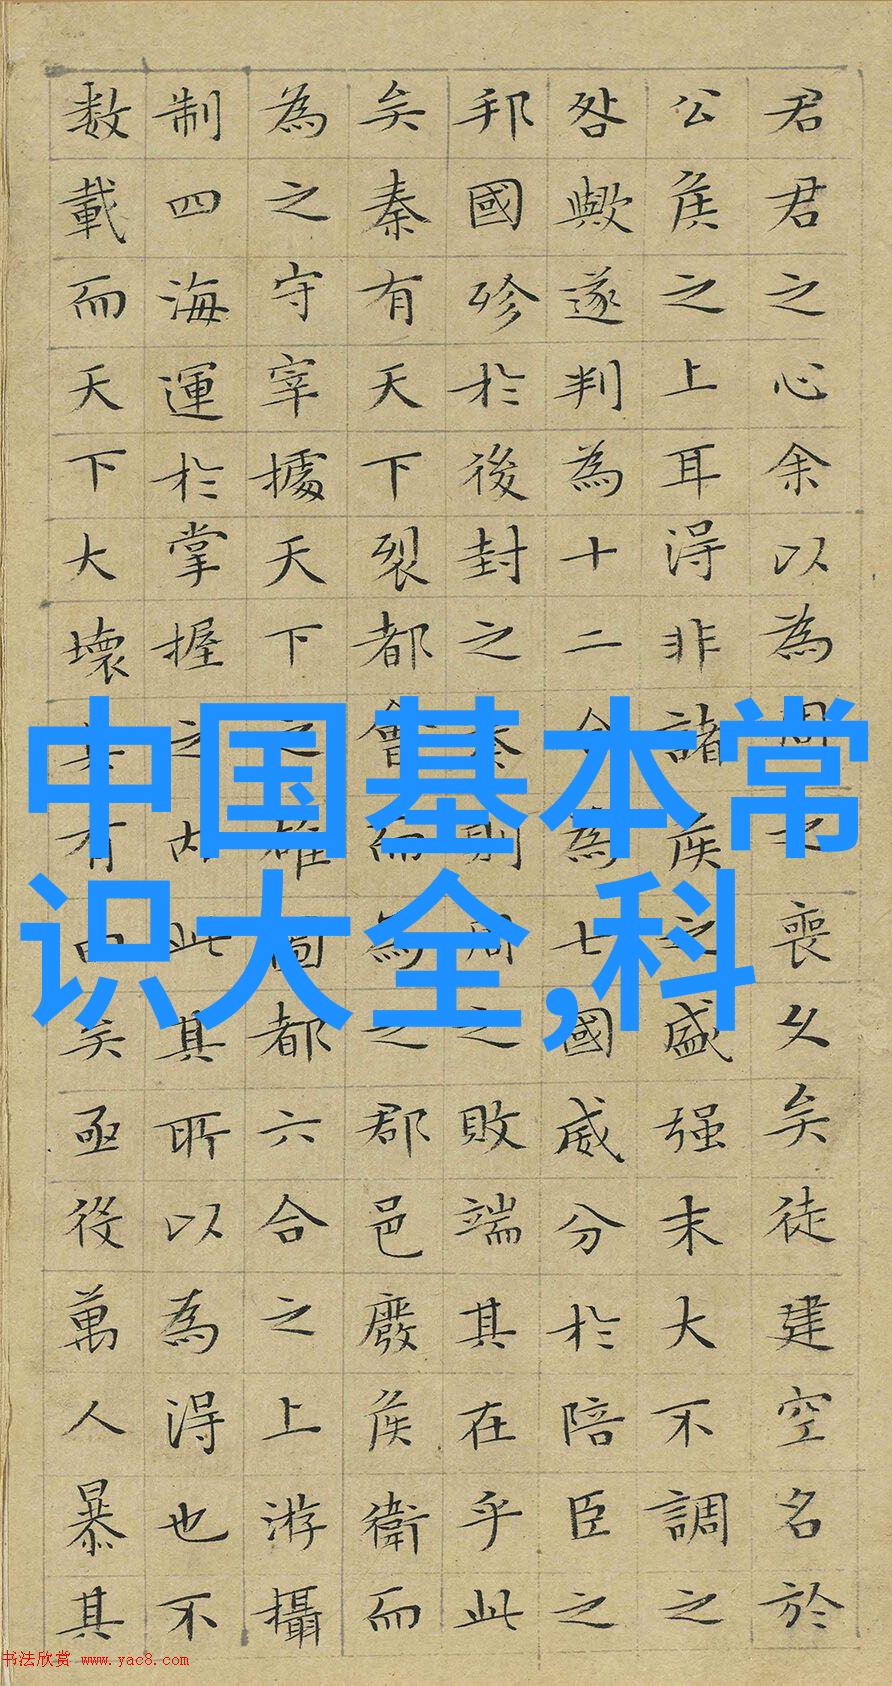 中国基本常
识大全,科
君君之心余以為周之喪久矣徒建空名於
公侯之上耳得非諸侯之盛强末大不調之
咎歟遂判為十二合為七國威分於陪臣之
邦國殄於後封之秦則周之敗端其在乎此
矣秦有天下裂都會而為之郡邑廢侯衛而
為之守宰據天下之雄圖都六合之上游攝
制四海運於掌握之内此其所以為得也不
数載而天下大壞其有由矣亟役萬人暴其
书法欣赏 www.yac8.com